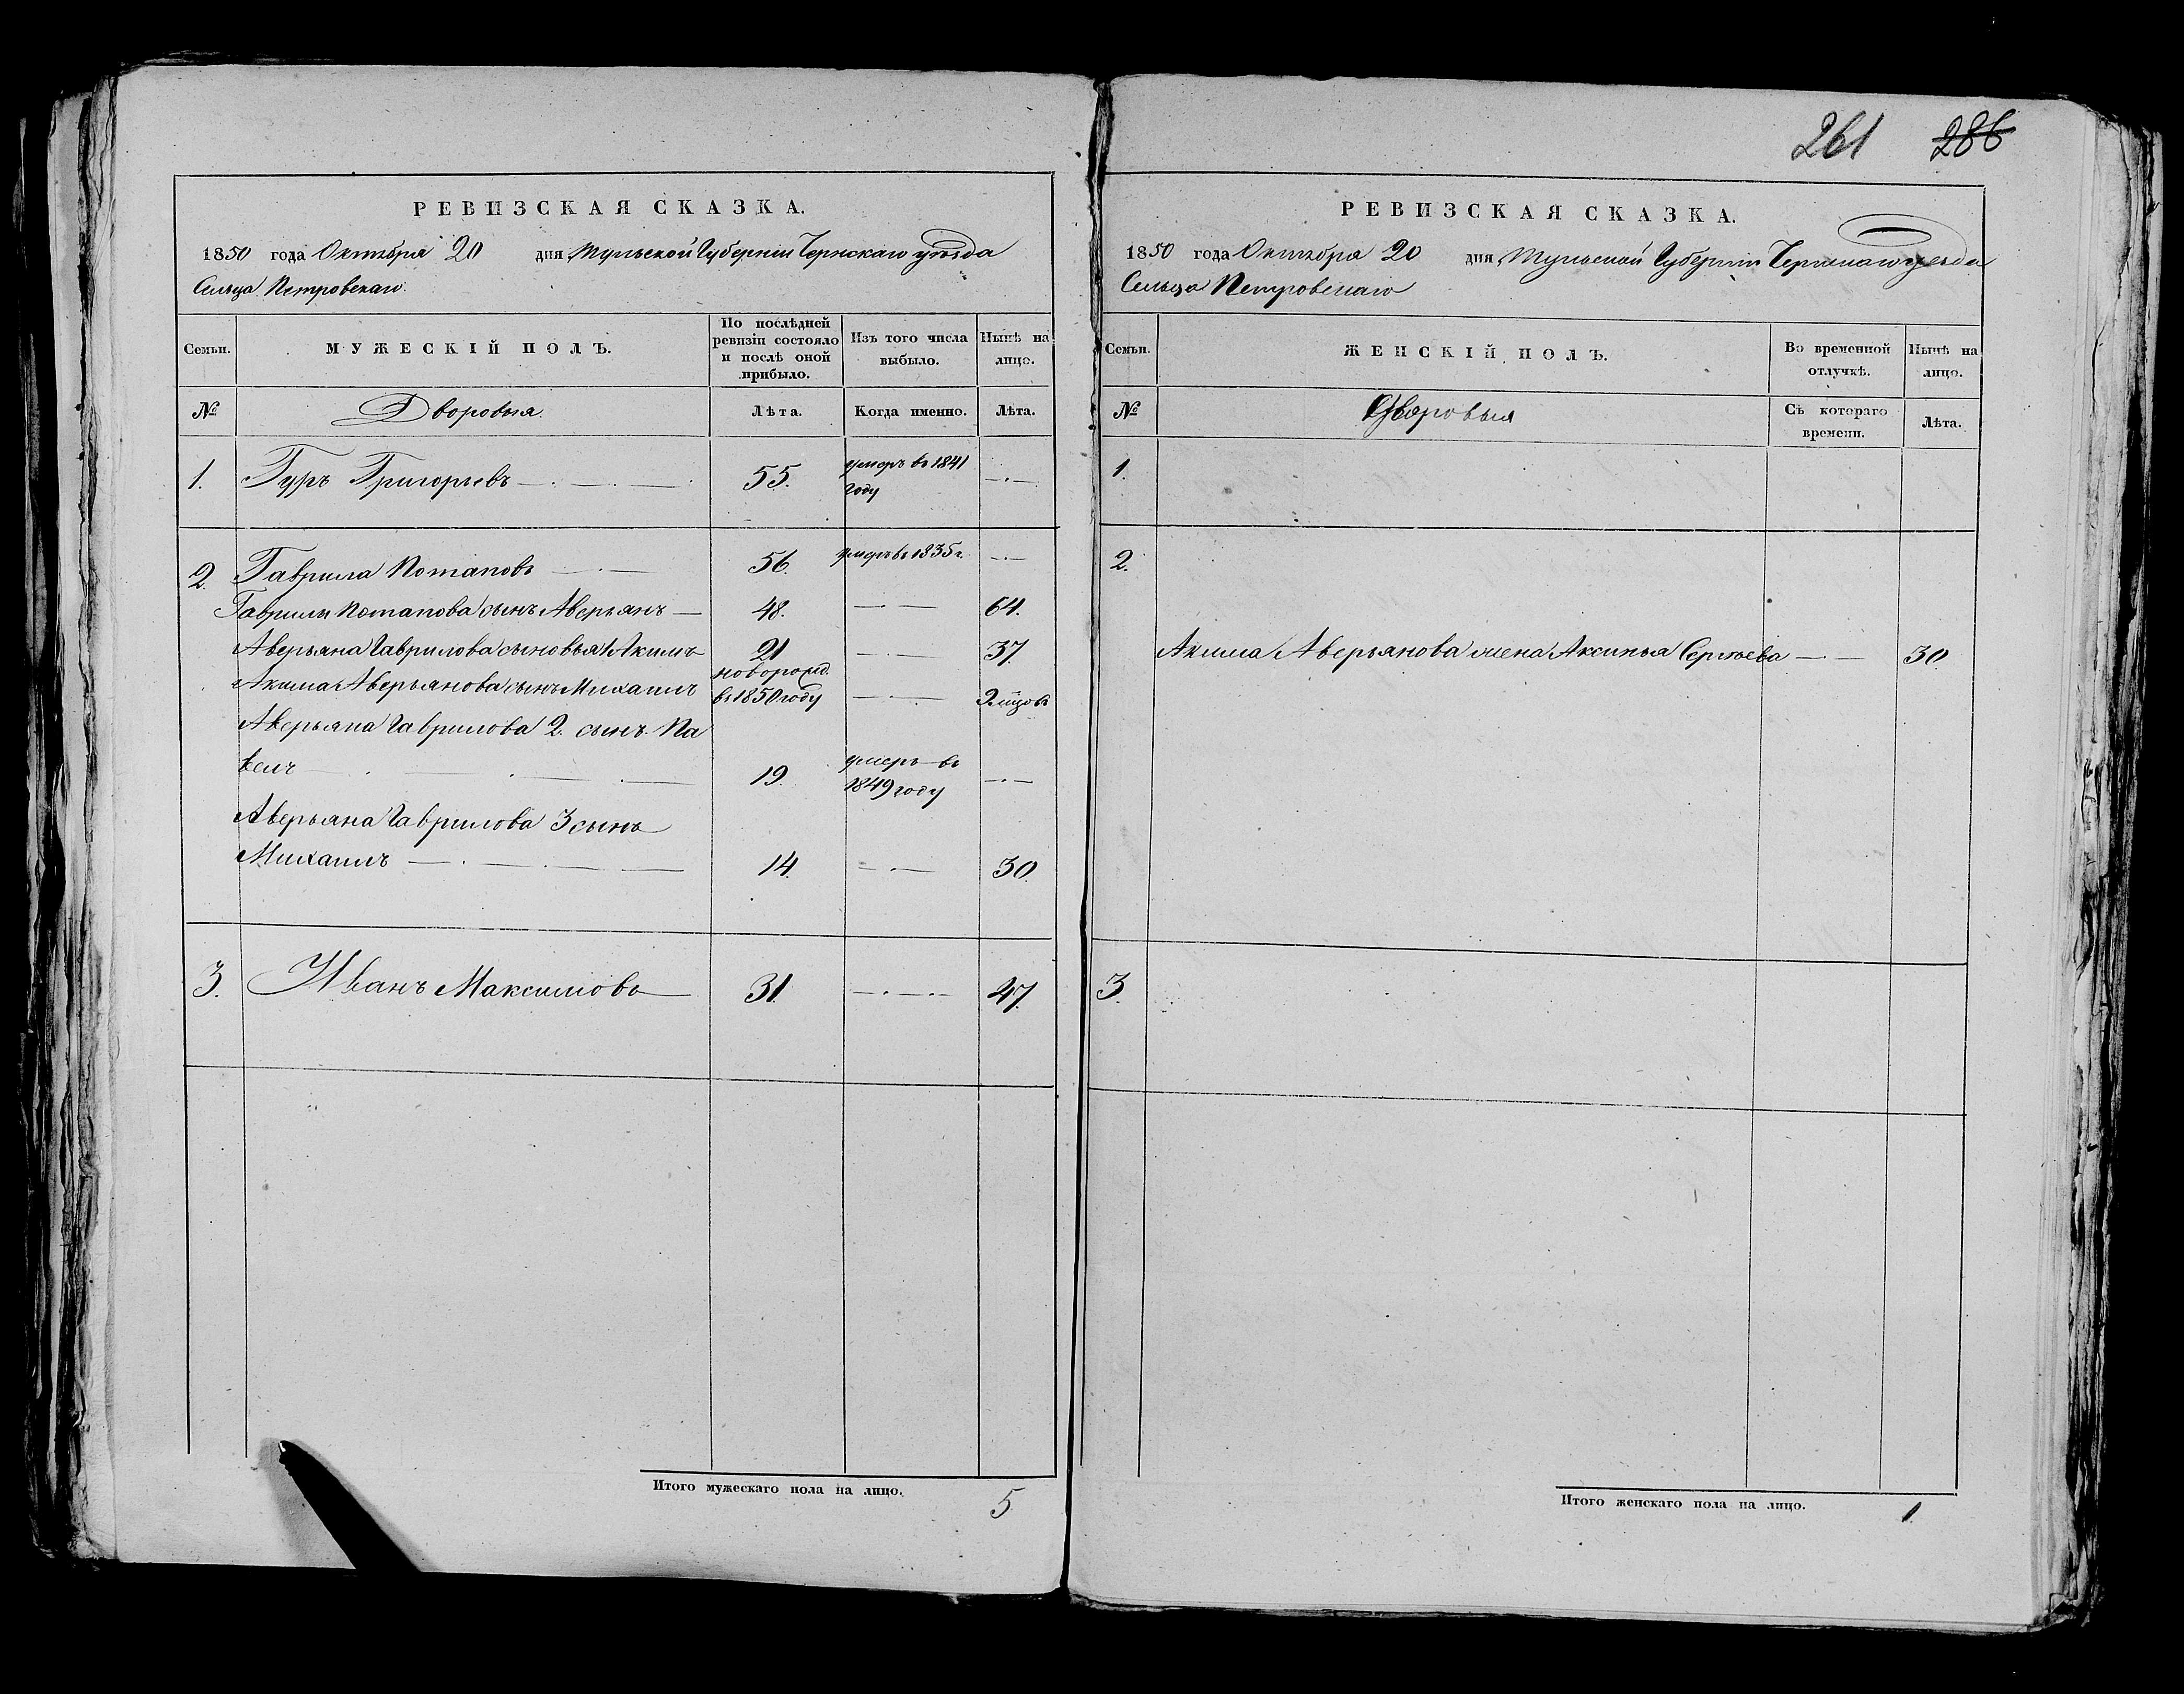 261 286
РЕВИЗСКАЯ СКАЗКА.
1850 года Октября 20 дня Тульской Губерніи Чернскаго уѣзда
Сельца Петровскаго.
Семьи.
МУЖЕСКІЙ ПОЛЪ.
По послѣдней ревизіи состояло и послѣ оной прибыло.
Изъ того числа выбыло.
Нынѣ на лицо.
№ Дворовыя. Лѣта. Когда именно. Лѣта.
1. Гуръ Григорьевъ — 55. умеръ въ 1841 году —
2. Гаврила Потаповъ — 56. умеръ въ 1835 г. —
Гаврилы Потапова сынъ Аверьянъ — 48. — 64.
Аверьяна Гаврилова сыновья 1 Акимъ 21 — 37.
Акима Аверьянова сынъ Михаилъ новорожд. въ 1850 году —
Аверьяна Гаврилова 2. сынъ Па
велъ — 19. умеръ въ 1849 году —
Аверьяна Гаврилова 3 сынъ
Михаилъ — 14. — 30.
3. Иванъ Максимовъ — 31. — 47.
Итого мужескаго пола на лицо. 5
РЕВИЗСКАЯ СКАЗКА.
1850 года Октября 20 дня Тульской Губерніи Чернскаго уѣзда
Сельца Петровскаго
Семьи.
ЖЕНСКІЙ ПОЛЪ.
Во временной отлучкѣ.
Нынѣ на лицо.
№ Дворовыя Съ котораго времени. Лѣта.
1.
2.
Акима Аверьянова жена Аксинья Сергѣева — 30.
3.
Итого женскаго пола на лицо. 1